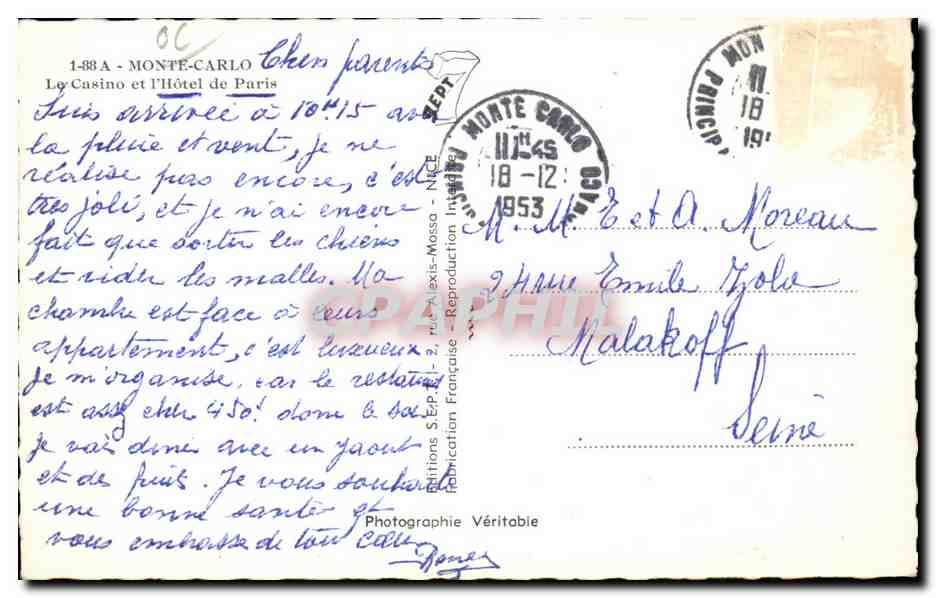 OC
1-88 A - MONTE-CARLO
Le Casino et l'Hôtel de Paris
Chers parents
Suis arrivée à 10H15 avec
la pluie et vent, je ne
réalise pas encore, c'est
très joli, et je n'ai encore
fait que sortir les chiens
et vider les malles. Ma
chambre est face à leurs
appartement, c'est luxueux
Je m'organise, car le restaurant
est assez cher 450f donc le soir
je vais diner avec un yaourt
et des fruits. Je vous souhaite
une bonne santé et
vous embrasse de tout coeur
SEPT
Editions S.E.P.T. - 2, rue Alexis-Mossa - NICE
Fabrication Française - Reproduction Interdite
Photographie Véritable
MONTE CARLO
PRINCIPTE MONACO
11H45
18-12
1953
MON
PRINCIP
11
18
19
M. M. E et A. Moreau
24 rue Emile Zola
Malakoff
Seine
CPAPHIL